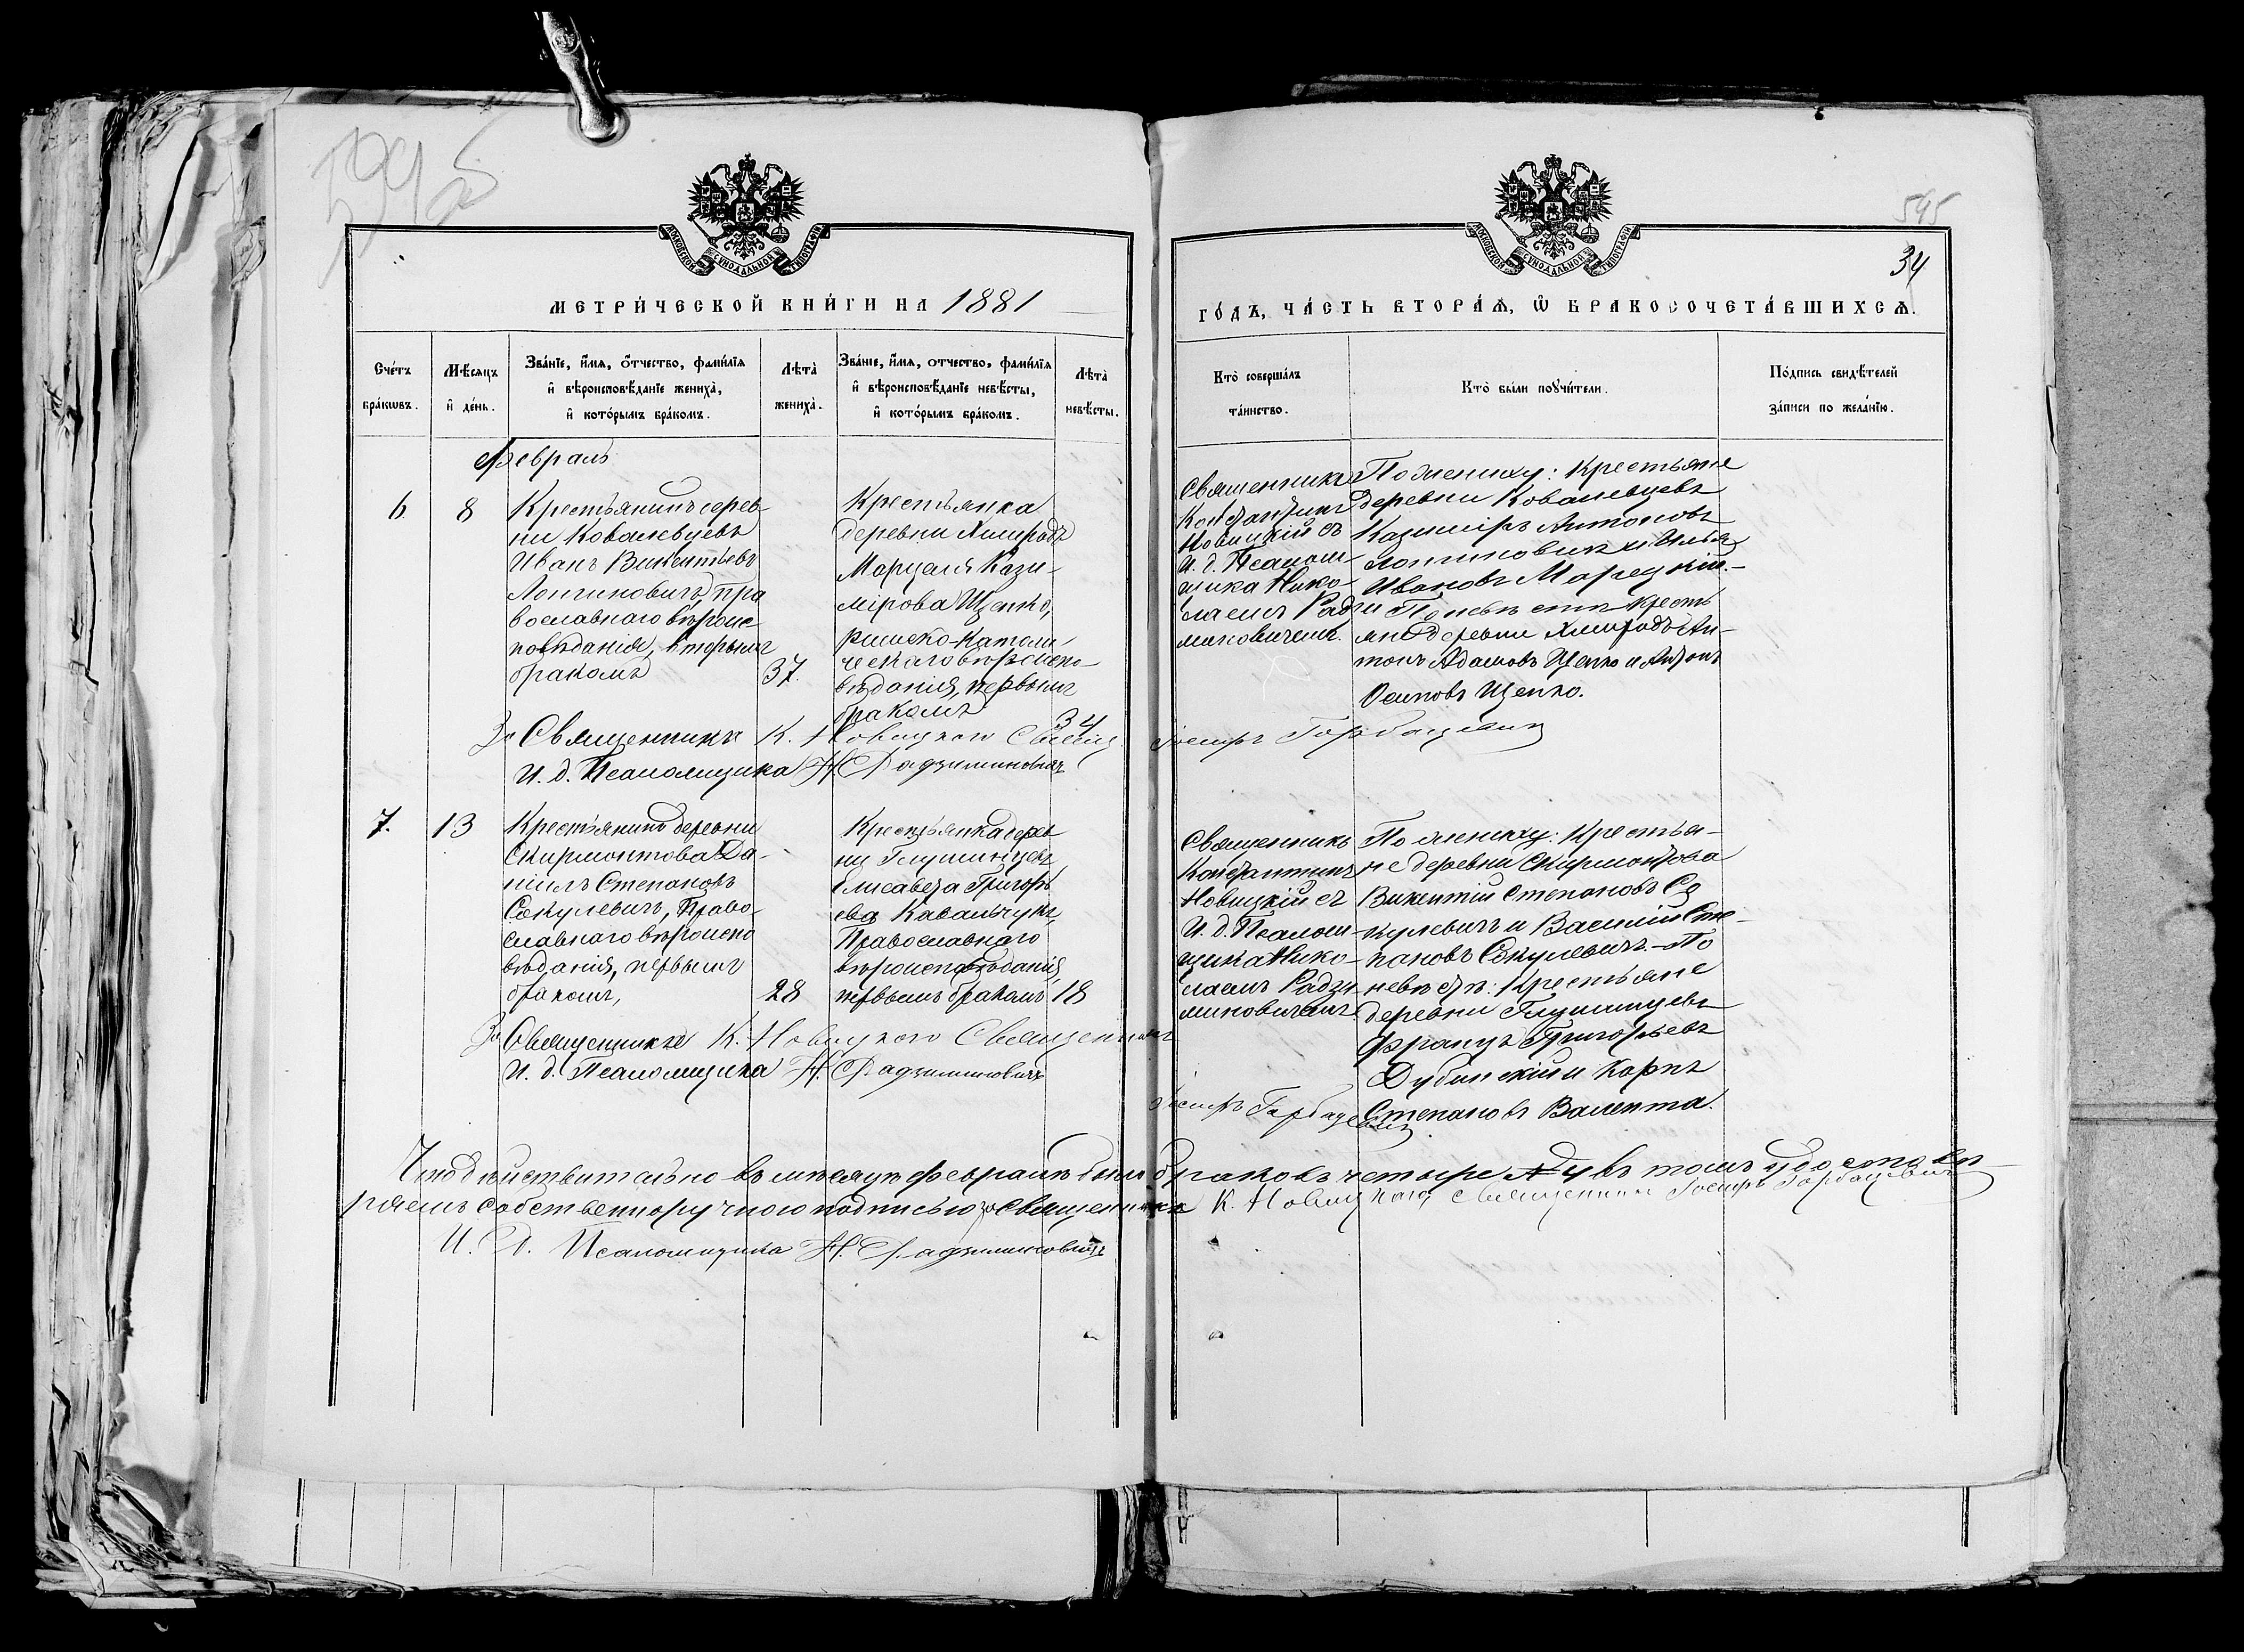 594 об
545
34
МОСКОВСКОЙ СѴНОДАЛЬНОЙ ТИПОГРАФІИ
МОСКОВСКОЙ СѴНОДАЛЬНОЙ ТИПОГРАФІИ
МЕТРИ́ЧЕСКОЙ КНИ́ГИ НА 1881
ГО́ДЪ, ЧА́СТЬ ВТОРА́Ѧ, Ѡ҆ БРАКОСОЧЕТА́ВШИХСѦ.
Сче́тъ
бра́кѡвъ.
Мѣ́сяцъ
и҆ де́нь.
Зва́нїе, и҆́мя, о҆́тчество, фами́лїя
и҆ вѣроисповѣ́данїе жениха̀,
и҆ кото́рымъ бра́комъ.
Лѣта̀
жениха̀.
Зва́нїе, и҆́мя, отчество, фами́лїя
и҆ вѣроисповѣ́данїе невѣ́сты,
и҆ кото́рымъ бра́комъ.
Лѣта̀
невѣ́сты.
Кто̀ соверша́лъ
та́инство.
Кто̀ бы́ли поꙋчи́тели.
По́дпись свидѣ́телей
за́писи по жела́нїю.
Февраль
6
8
Крестьянинъ дерев-
ни Ковалевцевъ
Иванъ Викентьевъ
Лонгиновичъ, пра
вославнаго вѣроис-
повѣданія, вторымъ
бракомъ
37.
Крестьянка
деревни Химродъ
Марцеля Кази-
мірова Щепко,
римско-католи-
ческаго вѣроиспо-
вѣданія, первымъ
бракомъ
34
Священникъ
Константинъ
Новицкій съ
И. д. Псалом-
щика Нико-
лаемъ Радзи
миновичемъ.
По жениху: Крестьяне
деревни Ковалевцевъ
Казиміръ Антоновъ
Лонгиновичъ и Илья
Ивановъ Марецкій.-
По невѣстѣ крестъ
яне деревни Химродъ Ан-
тонъ Адамовъ Щепко и Антонъ
Осиповъ Щепко.
За Священника К. Новицкаго Свящ. Іосифъ Горбацевич
И. д. Псаломщика Н. Радзиминовичъ
7.
13
Крестьянинъ деревни
Скирмонтова Да-
ніилъ Степановъ
Сакулевичъ, Право-
славнаго вѣроиспо
вѣданія, первымъ
бракомъ,
28
Крестьянка дерев
ни Глушинцевъ
Елисавета Григорь
ева Кавальчукъ,
Православнаго
вѣроисповѣданія,
первымъ бракомъ
18
Священникъ
Константинъ
Новицкій съ
И. д. Псалом-
щика Нико-
лаемъ Радзи-
миновичемъ
По жениху: Крестья-
не деревни Скирмонтова
Викентій Степановъ Са
кулевичъ и Василій Сте-
пановъ Сакулевичъ.-По
невѣстѣ: Крестьяне
деревни Глушинцевъ
Францъ Григорьевъ
Дубинскій и Карпъ
Степановъ Валента.
За Священника К. Новицкаго Священникъ
Іосифъ Горбацевич
И. д. Псаломщика Н. Радзиминовичъ
Что дѣйствительно въ мѣсяцѣ февралѣ было браковъ четыре № 4 въ томъ удостовѣ-
ряемъ собственноручною подписью за Священника К. Новицкаго священникъ Іосифъ Горбацевичъ
И. Д. Псаломщика Н. Радзиминовичъ